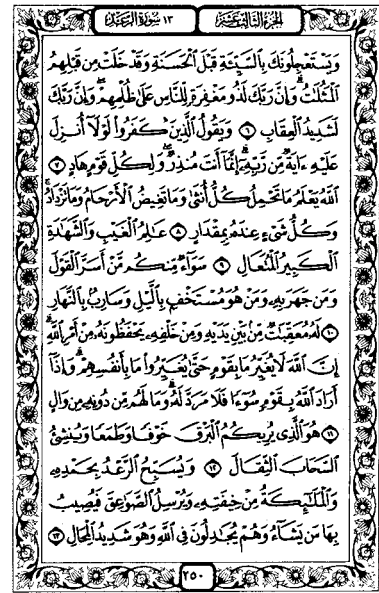 الجزء الثالث عشر ١٣ سورة الرعد
وَيَسْتَعْجِلُونَكَ بِالسَّيِّئَةِ قَبْلَ الْحَسَنَةِ وَقَدْ خَلَتْ مِن قَبْلِهِمُ
الْمَثُلَٰتُ ۗ وَإِنَّ رَبَّكَ لَذُو مَغْفِرَةٍ لِّلنَّاسِ عَلَىٰ ظُلْمِهِمْ ۖ وَإِنَّ رَبَّكَ
لَشَدِيدُ الْعِقَابِ ٦ وَيَقُولُ الَّذِينَ كَفَرُوا لَوْلَا أُنزِلَ
عَلَيْهِ ءَايَةٌ مِّن رَّبِّهِ ۗ إِنَّمَا أَنتَ مُنذِرٌ ۖ وَلِكُلِّ قَوْمٍ هَادٍ ٧
اللَّهُ يَعْلَمُ مَا تَحْمِلُ كُلُّ أُنثَىٰ وَمَا تَغِيضُ الْأَرْحَامُ وَمَا تَزْدَادُ ۖ
وَكُلُّ شَىْءٍ عِندَهُ بِمِقْدَارٍ ٨ عَٰلِمُ الْغَيْبِ وَالشَّهَٰدَةِ
الْكَبِيرُ الْمُتَعَالِ ٩ سَوَآءٌ مِّنكُم مَّنْ أَسَرَّ الْقَوْلَ
وَمَن جَهَرَ بِهِ وَمَنْ هُوَ مُسْتَخْفٍ بِالَّيْلِ وَسَارِبٌ بِالنَّهَارِ
١٠ لَهُ مُعَقِّبَٰتٌ مِّن بَيْنِ يَدَيْهِ وَمِنْ خَلْفِهِ يَحْفَظُونَهُ مِنْ أَمْرِ اللَّهِ ۗ
إِنَّ اللَّهَ لَا يُغَيِّرُ مَا بِقَوْمٍ حَتَّىٰ يُغَيِّرُوا مَا بِأَنفُسِهِمْ ۗ وَإِذَآ
أَرَادَ اللَّهُ بِقَوْمٍ سُوٓءًا فَلَا مَرَدَّ لَهُ ۚ وَمَا لَهُم مِّن دُونِهِ مِن وَالٍ
١١ هُوَ الَّذِى يُرِيكُمُ الْبَرْقَ خَوْفًا وَطَمَعًا وَيُنشِئُ
السَّحَابَ الثِّقَالَ ١٢ وَيُسَبِّحُ الرَّعْدُ بِحَمْدِهِ
وَالْمَلَٰٓئِكَةُ مِنْ خِيفَتِهِ وَيُرْسِلُ الصَّوَٰعِقَ فَيُصِيبُ
بِهَا مَن يَشَآءُ وَهُمْ يُجَٰدِلُونَ فِى اللَّهِ وَهُوَ شَدِيدُ الْمِحَالِ ١٣
٢٥٠